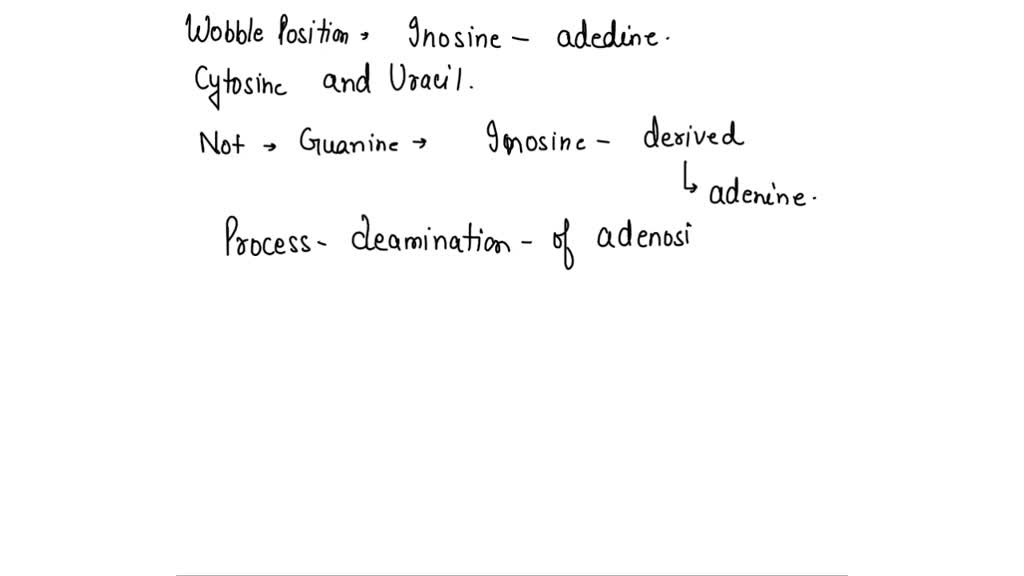 Wobble Position → Inosine - adedine.
Cytosine and Uracil.
Not → Guanine → Inosine - derived
↳ adenine.
Process - deamination - of adenosi